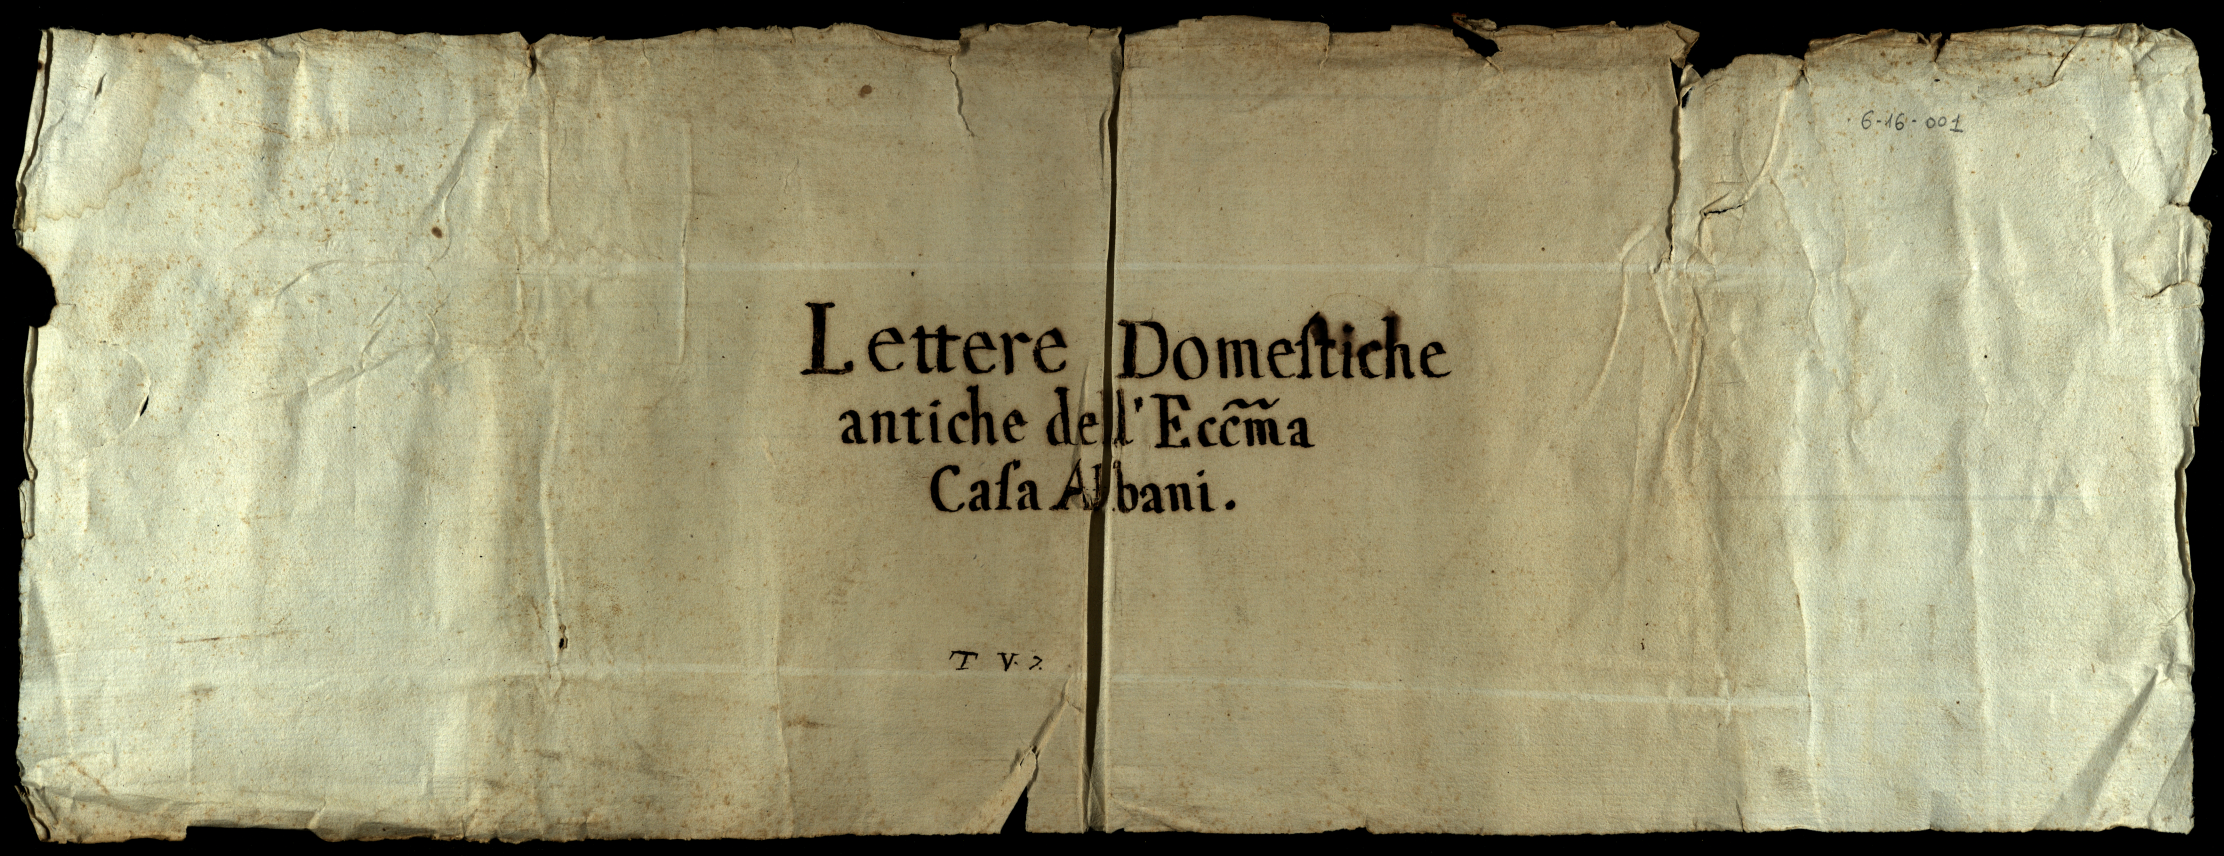 6-16-001
Lettere Domeſtiche
antiche dell' Ecc̃m̃a
Caſa Albani.
T V. 7.